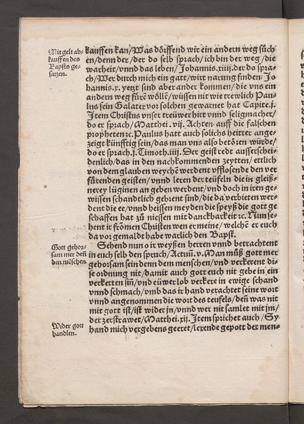 Mit gelt ab
kauffen des
Bapsts ge-
satzen.
kauffen kan/Was dörffend wir ein andern weg sůch
en/denn der/der do selb sprach/ich bin der weg/die
warheit/vnnd das leben/Johannis.xiiij.der do spra-
ch/Wer durch mich ein gatt/wirt narung finden/Jo
hannis.x.yetzt sind aber ander kommen/die vns ein
andern weg fürē wöllē/wüssen nit wie trewlich Pau
lus sein Galater vor solchen gewarnet hat Capite.j.
Item Christus vnser treüwer hirt vnnd seligmacher/
do er sprach/Matthei.vij. Achten auff die falschen
propheten ꝛc. Paulus hatt auch solichs heitter ange-
zeigt künfftig sein/das man vns also betöten würde/
do er sprach.j.Timoth.iiij. Der geist rede ausserschei-
denlich/das in den nachkommenden zeytten/ettlich
von dem glauben weychē werdent vfflosende den ver
fürenden geisten/vnnd leren der teüflen die in gleiß-
nerey lüginen an geben werdent/vnd doch in iren ge-
wissen schandtlich gebrent sind/die da verbieten wer-
dent die ee/vnnd heissen meyden die speyß die gott ge
schaffen hat zů niessen mit danckbarkeit ꝛc. Nun se-
hent ir frömen Christen wer er meine/welchē er euch
da vor gemalet habe warlich den Bapst.
Gott gehor-
sam mer deñ
den mēschen
Sehend nun o ir weysen herren vnnd betrachtent
in euch selb den spruch/Actuū.v. Man můß gott mer
gehorsam sein denn dem menschen/vnd verkerent di-
se ordnung nit/damit auch gott euch nit gebe in ein
verkerten siñ/vnd eüwer lob verker in ewige schand
vnnd schmach/vnnd das ir hand veracht et seine wort
vnnd angenommen die wort des teufels/deñ was nit
mit gott ist/ist wider jn/vnnd wer nit samlet mit jm/
der zerströwet/Matthei.xij. Item spricht er auch/Sy
Wider gott
handlen.
hand mich vergebens geeret/lerende gepott der men-